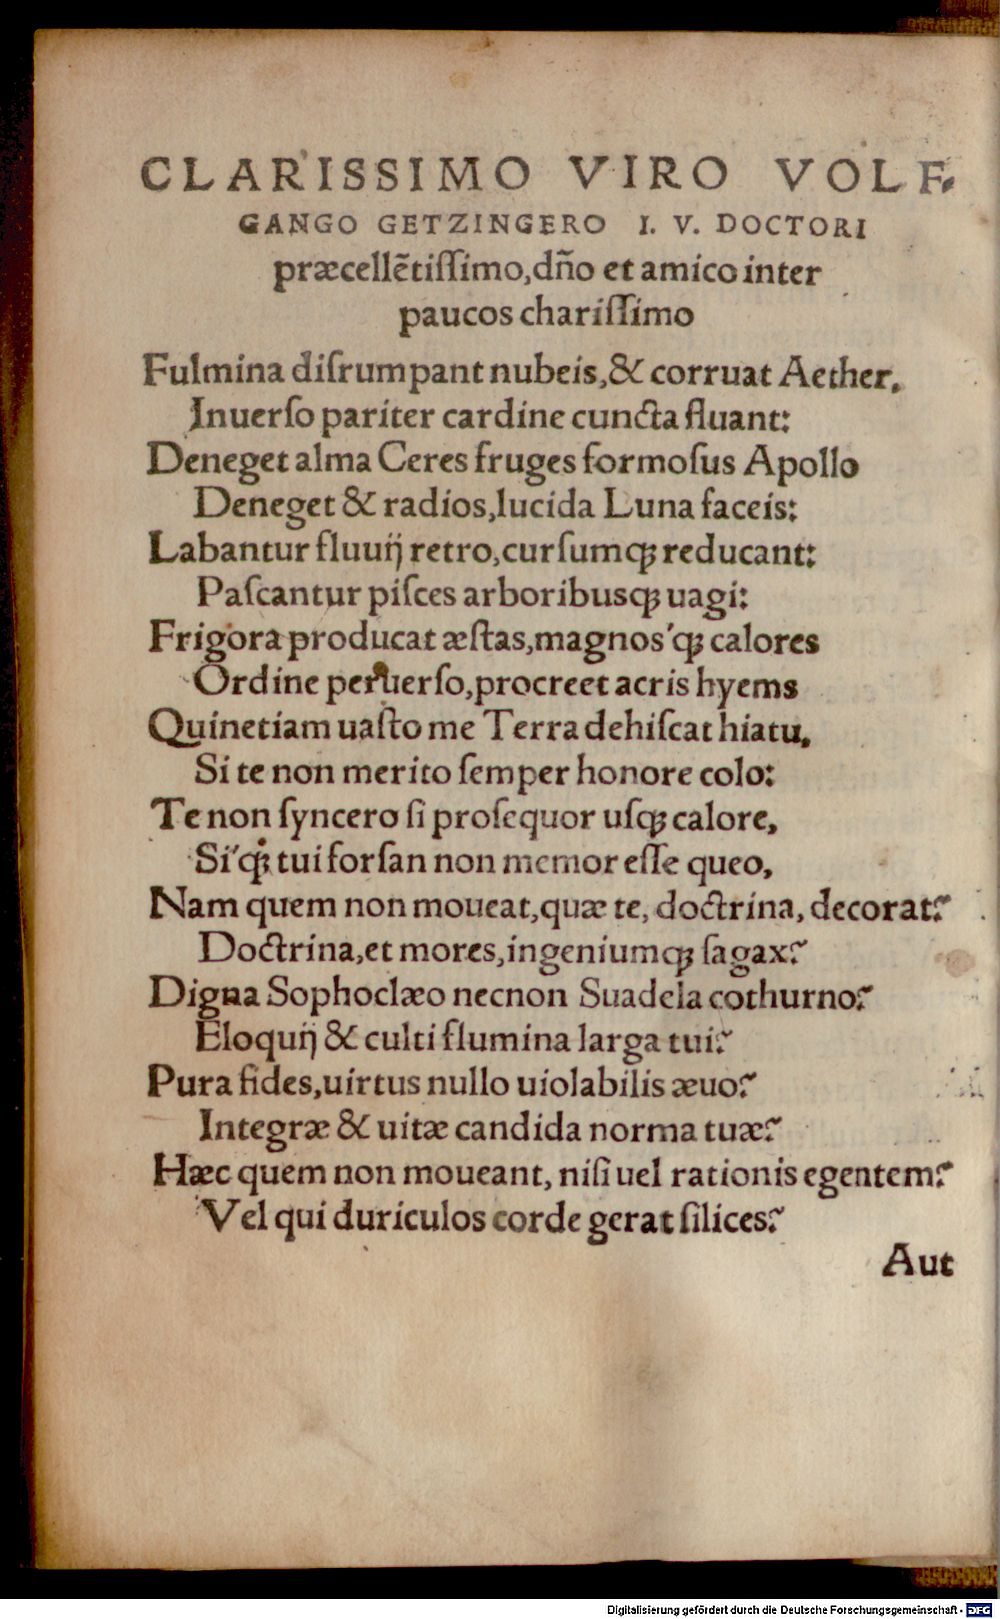 CLARISSIMO VIRO VOLF⸗
GANGO GETZINGERO I. V. DOCTORI
præcellẽtiſſimo, dño et amico inter
paucos chariſſimo
Fulmina diſrumpant nubeis, & corruat Aether.
Inuerſo pariter cardine cuncta fluant:
Deneget alma Ceres fruges formoſus Apollo
Deneget & radios, lucida Luna faceis:
Labantur fluuĳ retro, curſumqꝫ reducant:
Paſcantur piſces arboribusqꝫ uagi:
Frigora producat æſtas, magnos'qꝫ calores
Ordine peruerſo, procreet acris hyems
Quinetiam uaſto me Terra dehiſcat hiatu.
Si te non merito ſemper honore colo:
Te non ſyncero ſi proſequor uſqꝫ calore,
Si'qꝫ tui forſan non memor eſſe queo,
Nam quem non moueat, quæ te, doctrina, decorat?
Doctrina, et mores, ingeniumqꝫ ſagax?
Digna Sophoclæo necnon Suadela cothurno?
Eloquĳ & culti flumina larga tui?
Pura fides, uirtus nullo uiolabilis æuo?
Integræ & uitæ candida norma tuæ?
Hæc quem non moueant, niſi uel rationis egentem?
Vel qui duriculos corde gerat ſilices?
Aut
Digitalisierung gefördert durch die Deutsche Forschungsgemeinschaft - DFG